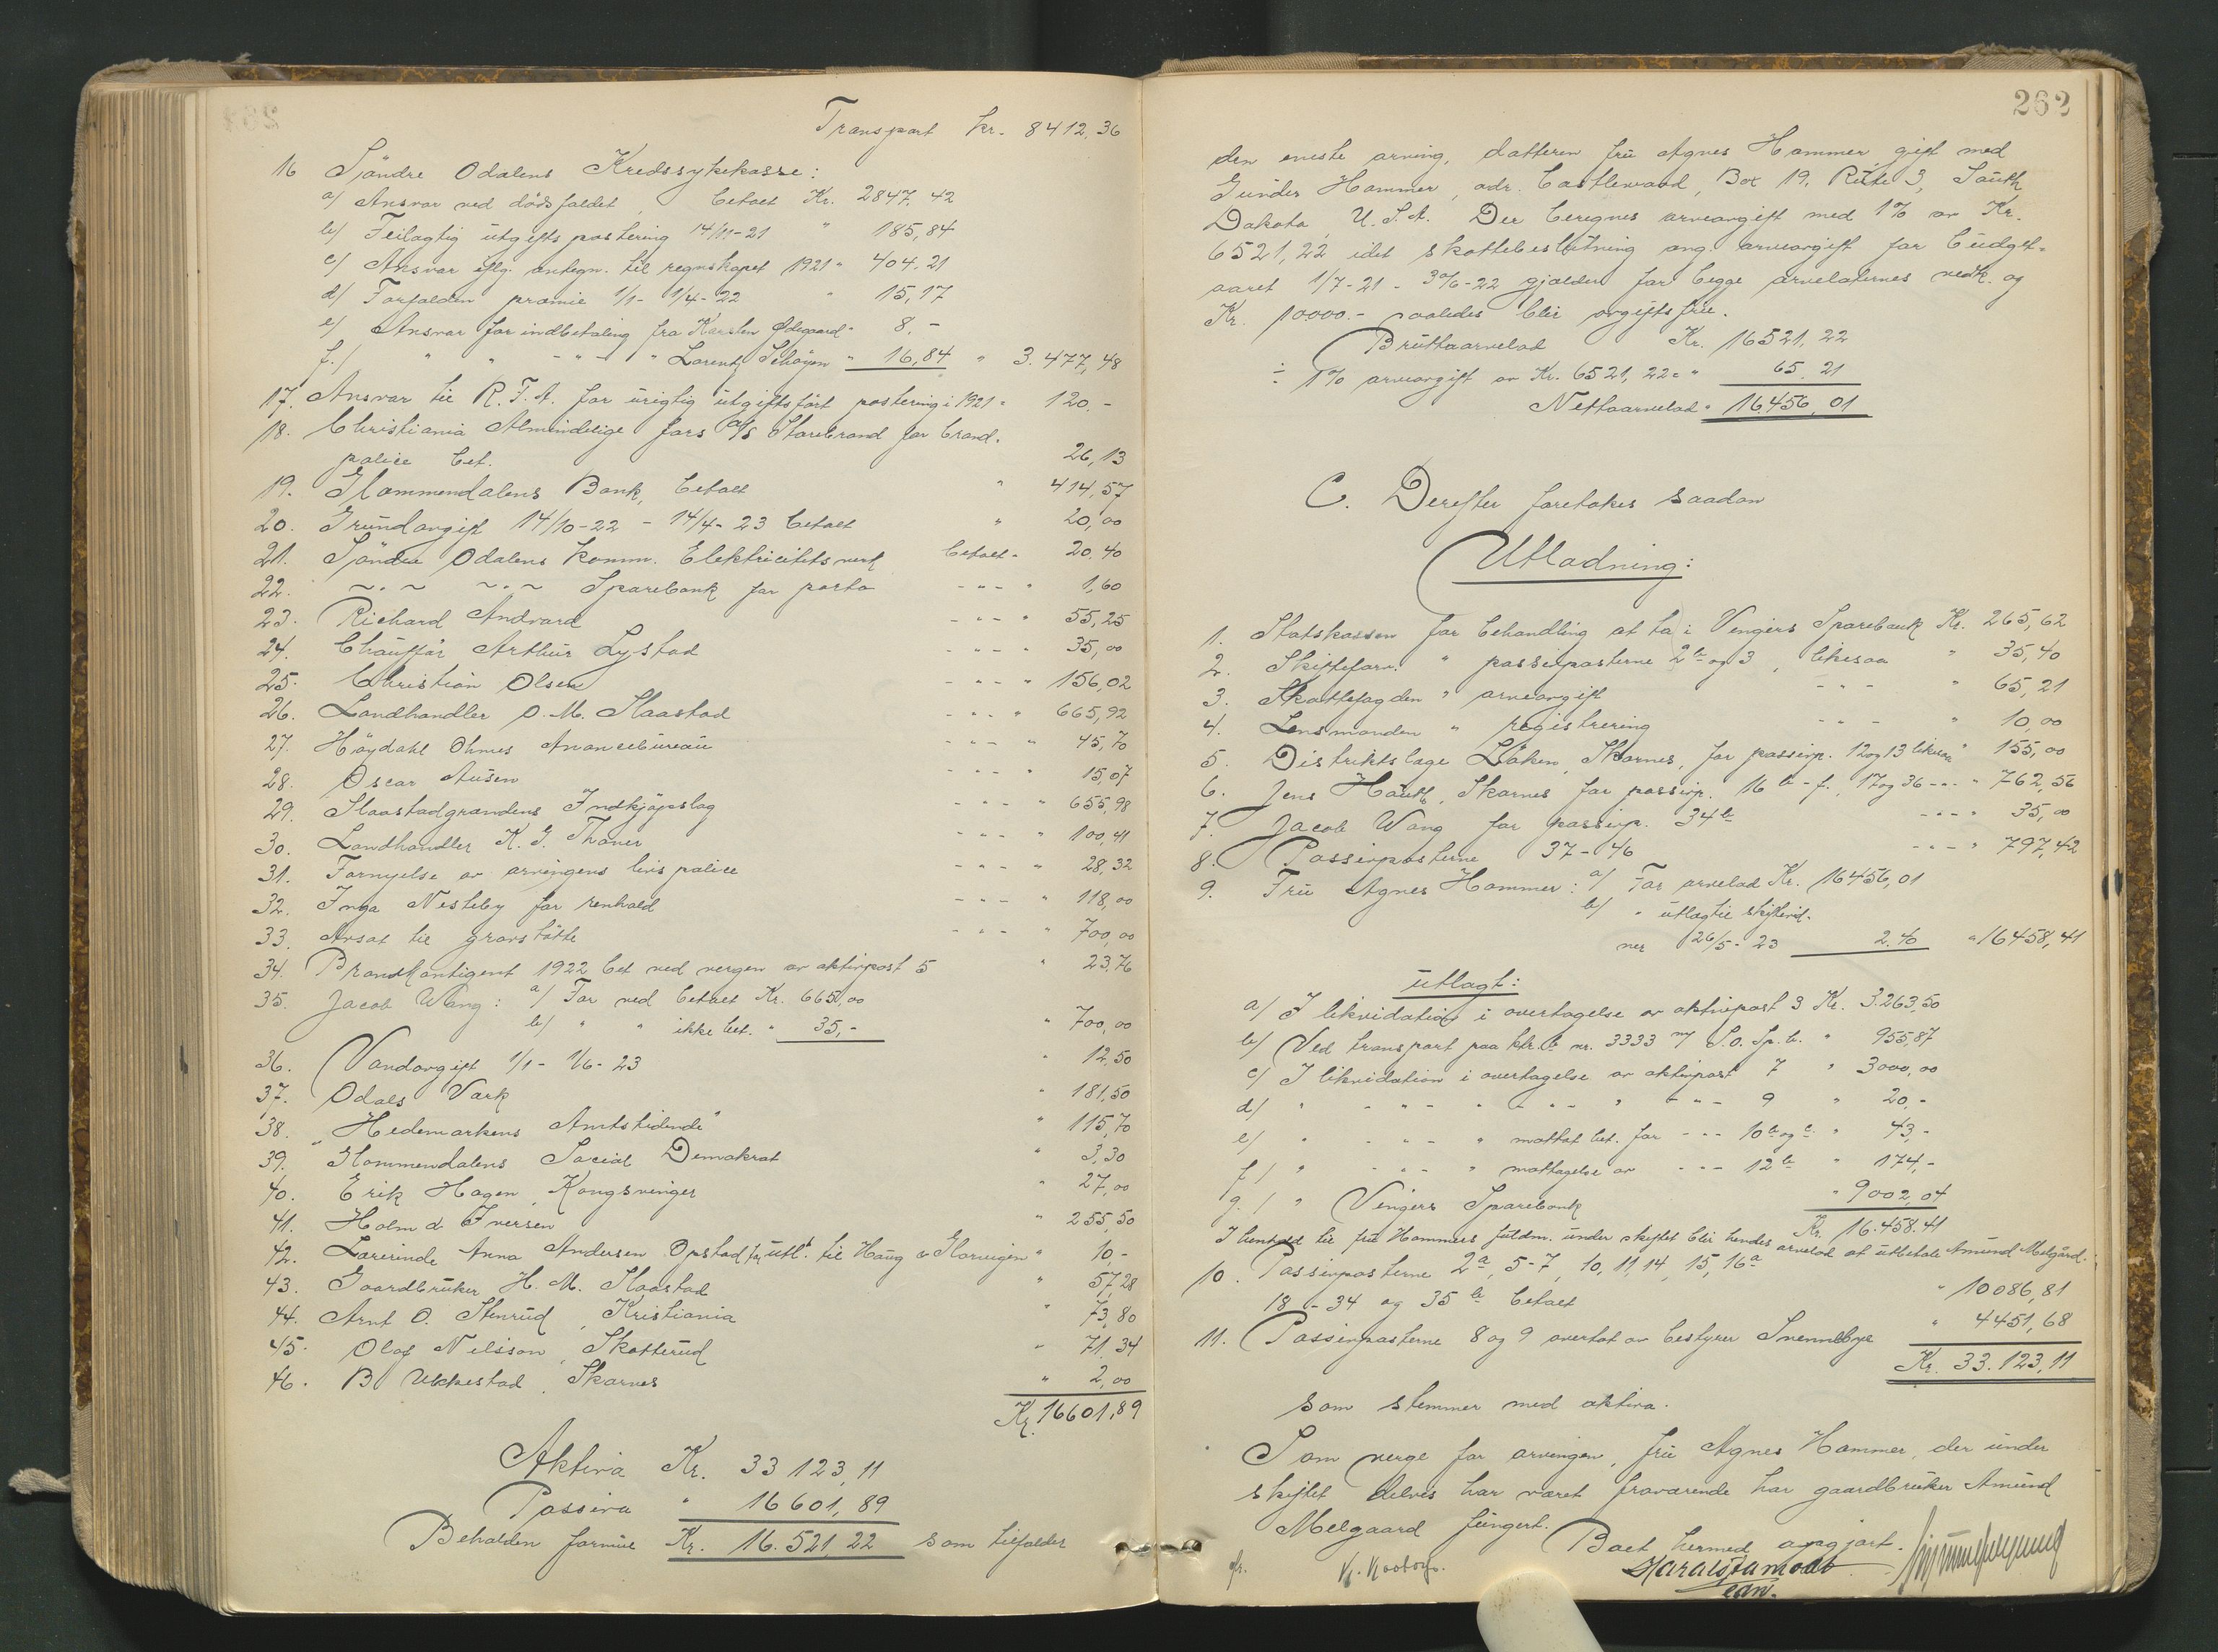 Transport kr. 8412,36
16 Söndre Odalens Kredssykekasse:
a/ Ansvar ved dödsfaldet, betalt Kr. 2847,42
b/ Feilagtig utgiftspostering 14/11-21 " 185,84
c/ Ansvar iflg. antegn. til regnskapet 1921 " 404,21
d/ Forfalden præmie 1/1 - 1/4-22 " 15,17
e/ Ansvar for indbetaling fra Karsten Ødegaard " 8,-
f./ " " - " - " Lorentz Schøyen " 16,84 " 3.477,48
17. Ansvar til R.T.A. for urigtig utgiftsfört postering i 1921 " 120.-
18. Christiania Almindelige fors. A/S Storebrand for brand-
police bet. 26,13
19. Glommendalens Bank, betalt " 414,57
20. Grundavgift 14/10-22 - 14/4-23 betalt " 20,00
21. Söndre Odalens komm. Elektricitetsverk betalt " 20,40
22. ~"~ ~"~ Sparebank for porto -"- " 1,60
23. Richard Andvard -"- " 55,25
24. Chauffør Arthur Lystad -"- " 35,00
25. Christian Olsen -"- " 156,02
26. Landhandler O. M. Slaastad -"- " 665,92
27. Høydahl Ohmes Anoncebureau -"- " 45,70
28. Oscar Ausen -"- " 15,07
29. Slaastadgrændens Indkjøpslag -"- " 655,98
30. Landhandler K. G. Thoner -"- " 100,41
31. Fornyelse av arvingens livspolice -"- " 28,32
32. Inga Nesteby for renhold -"- " 118,00
33. Avsat til gravstötte -"- " 700,00
34. Brandkontigent 1922 bet. ved vergen av aktivpost 5 " 23,76
35. Jacob Wang: a/ For ved betalt Kr. 665,00
b/ " " ikke bet. " 35,- " 700,00
36. Vandavgift 1/1 - 1/6-23 " 12,50
37. Odals Verk " 181,50
38. "Hedemarkens Amtstidende" " 115,70
39. Glommendalens Social Demokrat " 3,30
40. Erik Hagen, Kongsvinger " 27,00
41. Holm & Iversen " 255,50
42. Lærerinde Anna Andersen Opstad for utl. til Haug & Glorvigen " 10,-
43. Gaardbruker H. M. Slaastad " 57,28
44. Arnt O. Stenrud, Kristiania " 73,80
45. Olaf Nilsson, Skotterud " 71,34
46. B. Ukkestad, Skarnes " 2,00
Kr. 16601,89
Aktiva Kr. 33 123,11
Passiva " 16 601,89
Beholden formue Kr. 16.521,22 som tilfalder
262
den eneste arving, datteren fru Agnes Hammer, gift med
Gunder Hammer, adr. Castlewood, Box 19, Rute 3, South
Dakota, U.S.A. Der beregnes arveavgift med 1% av Kr.
6521,22 idet skattebeslutning ang. arveavgift for budget-
aaret 1/7-21 - 30/6-22 gjælder for begge arvelaternes vedk. og
Kr. 10000.- saaledes blir avgiftsfrie.
Bruttoarvelod Kr. 16521,22
÷ 1% arveavgift av Kr. 6521,22 = " 65,21
Nettoarvelod " 16456,01
C. Derefter foretokes saadan
Utlodning:
1. Statskassen for behandling at ta i Vingers Sparebank Kr. 265,62
2. Skifteforv. " passivposterne 2 b og 3, likesaa " 35,40
3. Skattefogden " arveavgift -"- " 65,21
4. Lensmanden " registrering -"- " 10,00
5. Distriktslæge Løken, Skarnes, for passivp. 12 og 13 likesaa " 155,00
6. Jens Hauth, Skarnes for passivp. 16 b - f., 17 og 36 -"- " 762,56
7. Jacob Wang for passivp. 34 b -"- " 35,00
8. Passivposterne 37-46 -"- " 797,42
9. Fru Agnes Hammer: a/ For arvelod Kr. 16456,01
b/ " utlæg til skiftevid-
ner 26/5-23 2.40 " 16458,41
utlagt:
a/ I likvidation i overtagelse av aktivpost 3 Kr. 3.263,50
b/ Ved transport paa ktr.b. nr. 3333 m/ S.O. Sp.b. " 955,87
c/ I likvidation i overtagelse av aktivpost 7 " 3000,00
d/ " -"- " -"- " -"- 9 " 20,-
e/ " -"- " mottat bet. for -"- 10 b og c " 43,-
f/ " -"- " mottagelse av -"- 12 b " 174,-
g./ " Vingers Sparebank " 9002,04
Kr. 16.458.41
I henhold til fru Hammers fuldm. under skiftet blir hendes arvelod at utbetale Amund Melgård.
10. Passivposterne 2a, 5-7, 10, 11, 14, 15, 16a
18 - 34 og 35 b betalt " 10086,81
11. Passivposterne 8 og 9 overtat av bestyrer Svennebye " 4451,68
Kr. 33.123,11
som stemmer med aktiva.
Som verge for arvingen, fru Agnes Hammer, der under
skiftet delvis har været fraværende har gaardbruker Amund
Melgaard fungert.
Boet hermed avgjort.